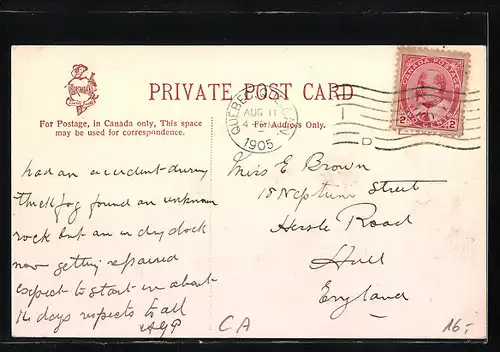 PRIVATE POST CARD
For Postage, in Canada only, This space
may be used for correspondence.
For Address Only.
QUEBEC
AUG 11
4
1905
D
CANADA POSTAGE
2 2
had an accident during
thick fog found an unknown
rock but an in dry dock
now getting repaired
expect to start in about
14 days respects to all
AGP
Miss E Brown
18 Neptune Street
Hessle Road
Hull
England
CA
16.-